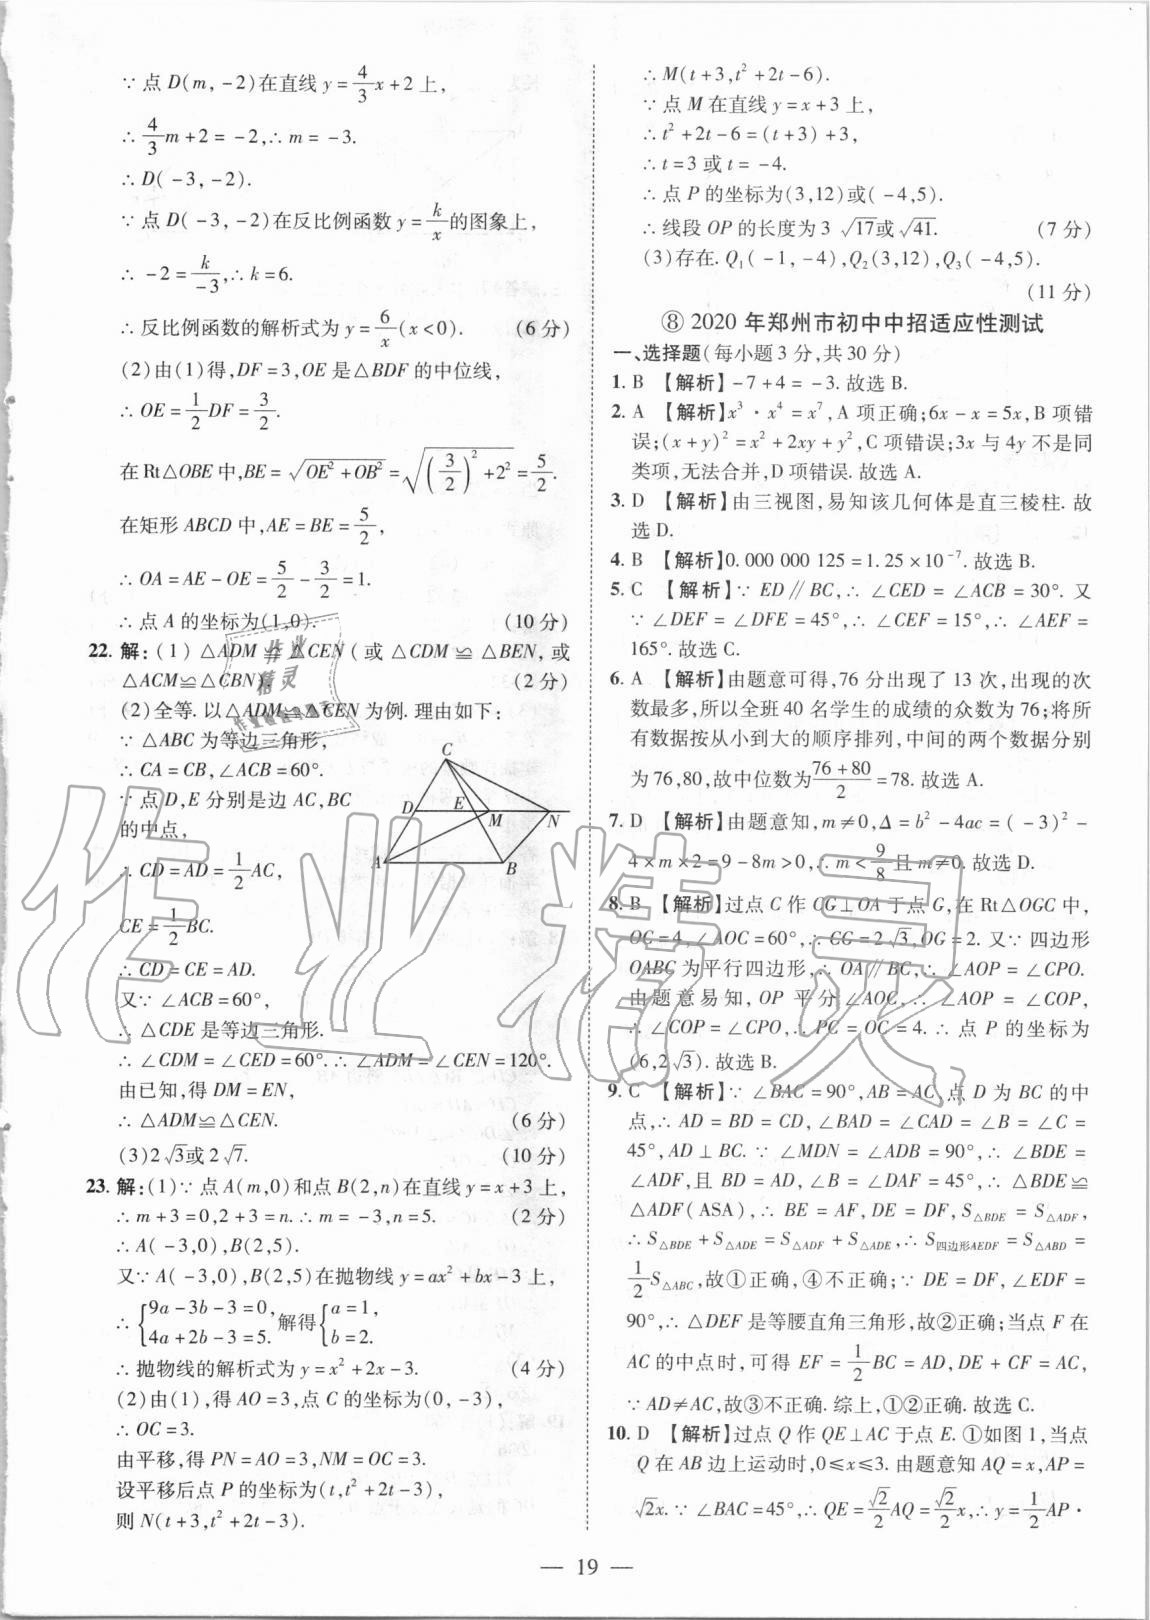 ∵点D(m,-2)在直线y=4/3x+2上,
∴4/3m+2=-2,∴m=-3.
∴D(-3,-2).
∵点D(-3,-2)在反比例函数y=k/x的图象上,
∴-2=k/-3,∴k=6.
∴反比例函数的解析式为y=6/x(x<0). (6分)
(2)由(1)得,DF=3,OE是△BDF的中位线,
∴OE=1/2DF=3/2.
在Rt△OBE中,BE=√(OE²+OB²)=√((3/2)²+2²)=5/2.
在矩形ABCD中,AE=BE=5/2,
∴OA=AE-OE=5/2-3/2=1.
∴点A的坐标为(1,0). (10分)
22.解:(1)△ADM≌△CEN(或△CDM≌△BEN,或
△ACM≌△CBN). (2分)
(2)全等.以△ADM≌△CEN为例.理由如下:
∵△ABC为等边三角形,
∴CA=CB,∠ACB=60°.
∵点D,E分别是边AC,BC
的中点,
∴CD=AD=1/2AC,
CE=1/2BC.
∴CD=CE=AD.
又∵∠ACB=60°,
∴△CDE是等边三角形.
∴∠CDM=∠CED=60°.∴∠ADM=∠CEN=120°.
由已知,得DM=EN,
∴△ADM≌△CEN. (6分)
(3)2√3或2√7. (10分)
C
D E M N
A B
23.解:(1)∵点A(m,0)和点B(2,n)在直线y=x+3上,
∴m+3=0,2+3=n.∴m=-3,n=5. (2分)
∴A(-3,0),B(2,5).
又∵A(-3,0),B(2,5)在抛物线y=ax²+bx-3上,
∴{9a-3b-3=0, 4a+2b-3=5. 解得{a=1, b=2.
∴抛物线的解析式为y=x²+2x-3. (4分)
(2)由(1),得AO=3,点C的坐标为(0,-3),
∴OC=3.
由平移,得PN=AO=3,NM=OC=3.
设平移后点P的坐标为(t,t²+2t-3),
则N(t+3,t²+2t-3).
∴M(t+3,t²+2t-6).
∵点M在直线y=x+3上,
∴t²+2t-6=(t+3)+3,
∴t=3或t=-4.
∴点P的坐标为(3,12)或(-4,5).
∴线段OP的长度为3√17或√41. (7分)
(3)存在.Q₁(-1,-4),Q₂(3,12),Q₃(-4,5).
(11分)
⑧ 2020年郑州市初中中招适应性测试
一、选择题(每小题3分,共30分)
1. B 【解析】-7+4=-3.故选B.
2. A 【解析】x³·x⁴=x⁷,A项正确;6x-x=5x,B项错
误;(x+y)²=x²+2xy+y²,C项错误;3x与4y不是同
类项,无法合并,D项错误.故选A.
3. D 【解析】由三视图,易知该几何体是直三棱柱.故
选D.
4. B 【解析】0.000 000 125=1.25×10⁻⁷.故选B.
5. C 【解析】∵ED∥BC,∴∠CED=∠ACB=30°.又
∵∠DEF=∠DFE=45°,∴∠CEF=15°,∴∠AEF=
165°.故选C.
6. A 【解析】由题意可得,76分出现了13次,出现的次
数最多,所以全班40名学生的成绩的众数为76;将所
有数据按从小到大的顺序排列,中间的两个数据分别
为76,80,故中位数为(76+80)/2=78.故选A.
7. D 【解析】由题意知,m≠0,Δ=b²-4ac=(-3)²-
4×m×2=9-8m>0,∴m<9/8且m≠0.故选D.
8. B 【解析】过点C作CG⊥OA于点G,在Rt△OGC中,
OC=4,∠AOC=60°,∴CG=2√3,OG=2.又∵四边形
OABC为平行四边形,∴OA∥BC,∴∠AOP=∠CPO.
由题意易知,OP平分∠AOC,∴∠AOP=∠COP,
∴∠COP=∠CPO,∴PC=OC=4.∴点P的坐标为
(6,2√3).故选B.
9. C 【解析】∵∠BAC=90°,AB=AC,点D为BC的中
点,∴AD=BD=CD,∠BAD=∠CAD=∠B=∠C=
45°,AD⊥BC.∵∠MDN=∠ADB=90°,∴∠BDE=
∠ADF,且BD=AD,∠B=∠DAF=45°,∴△BDE≌
△ADF(ASA),∴BE=AF,DE=DF,S△BDE=S△ADF,
∴S△BDE+S△ADE=S△ADF+S△ADE,∴S四边形AEDF=S△ABD=
1/2S△ABC,故①正确,④不正确;∵DE=DF,∠EDF=
90°,∴△DEF是等腰直角三角形,故②正确;当点F在
AC的中点时,可得EF=1/2BC=AD,DE+CF=AC,
∵AD≠AC,故③不正确.综上,①②正确.故选C.
10. D 【解析】过点Q作QE⊥AC于点E.①如图1,当点
Q在AB边上运动时,0≤x≤3.由题意知AQ=x,AP=
√2x.∵∠BAC=45°,∴QE=√2/2AQ=√2/2x,∴y=1/2AP·
— 19 —
作业精灵